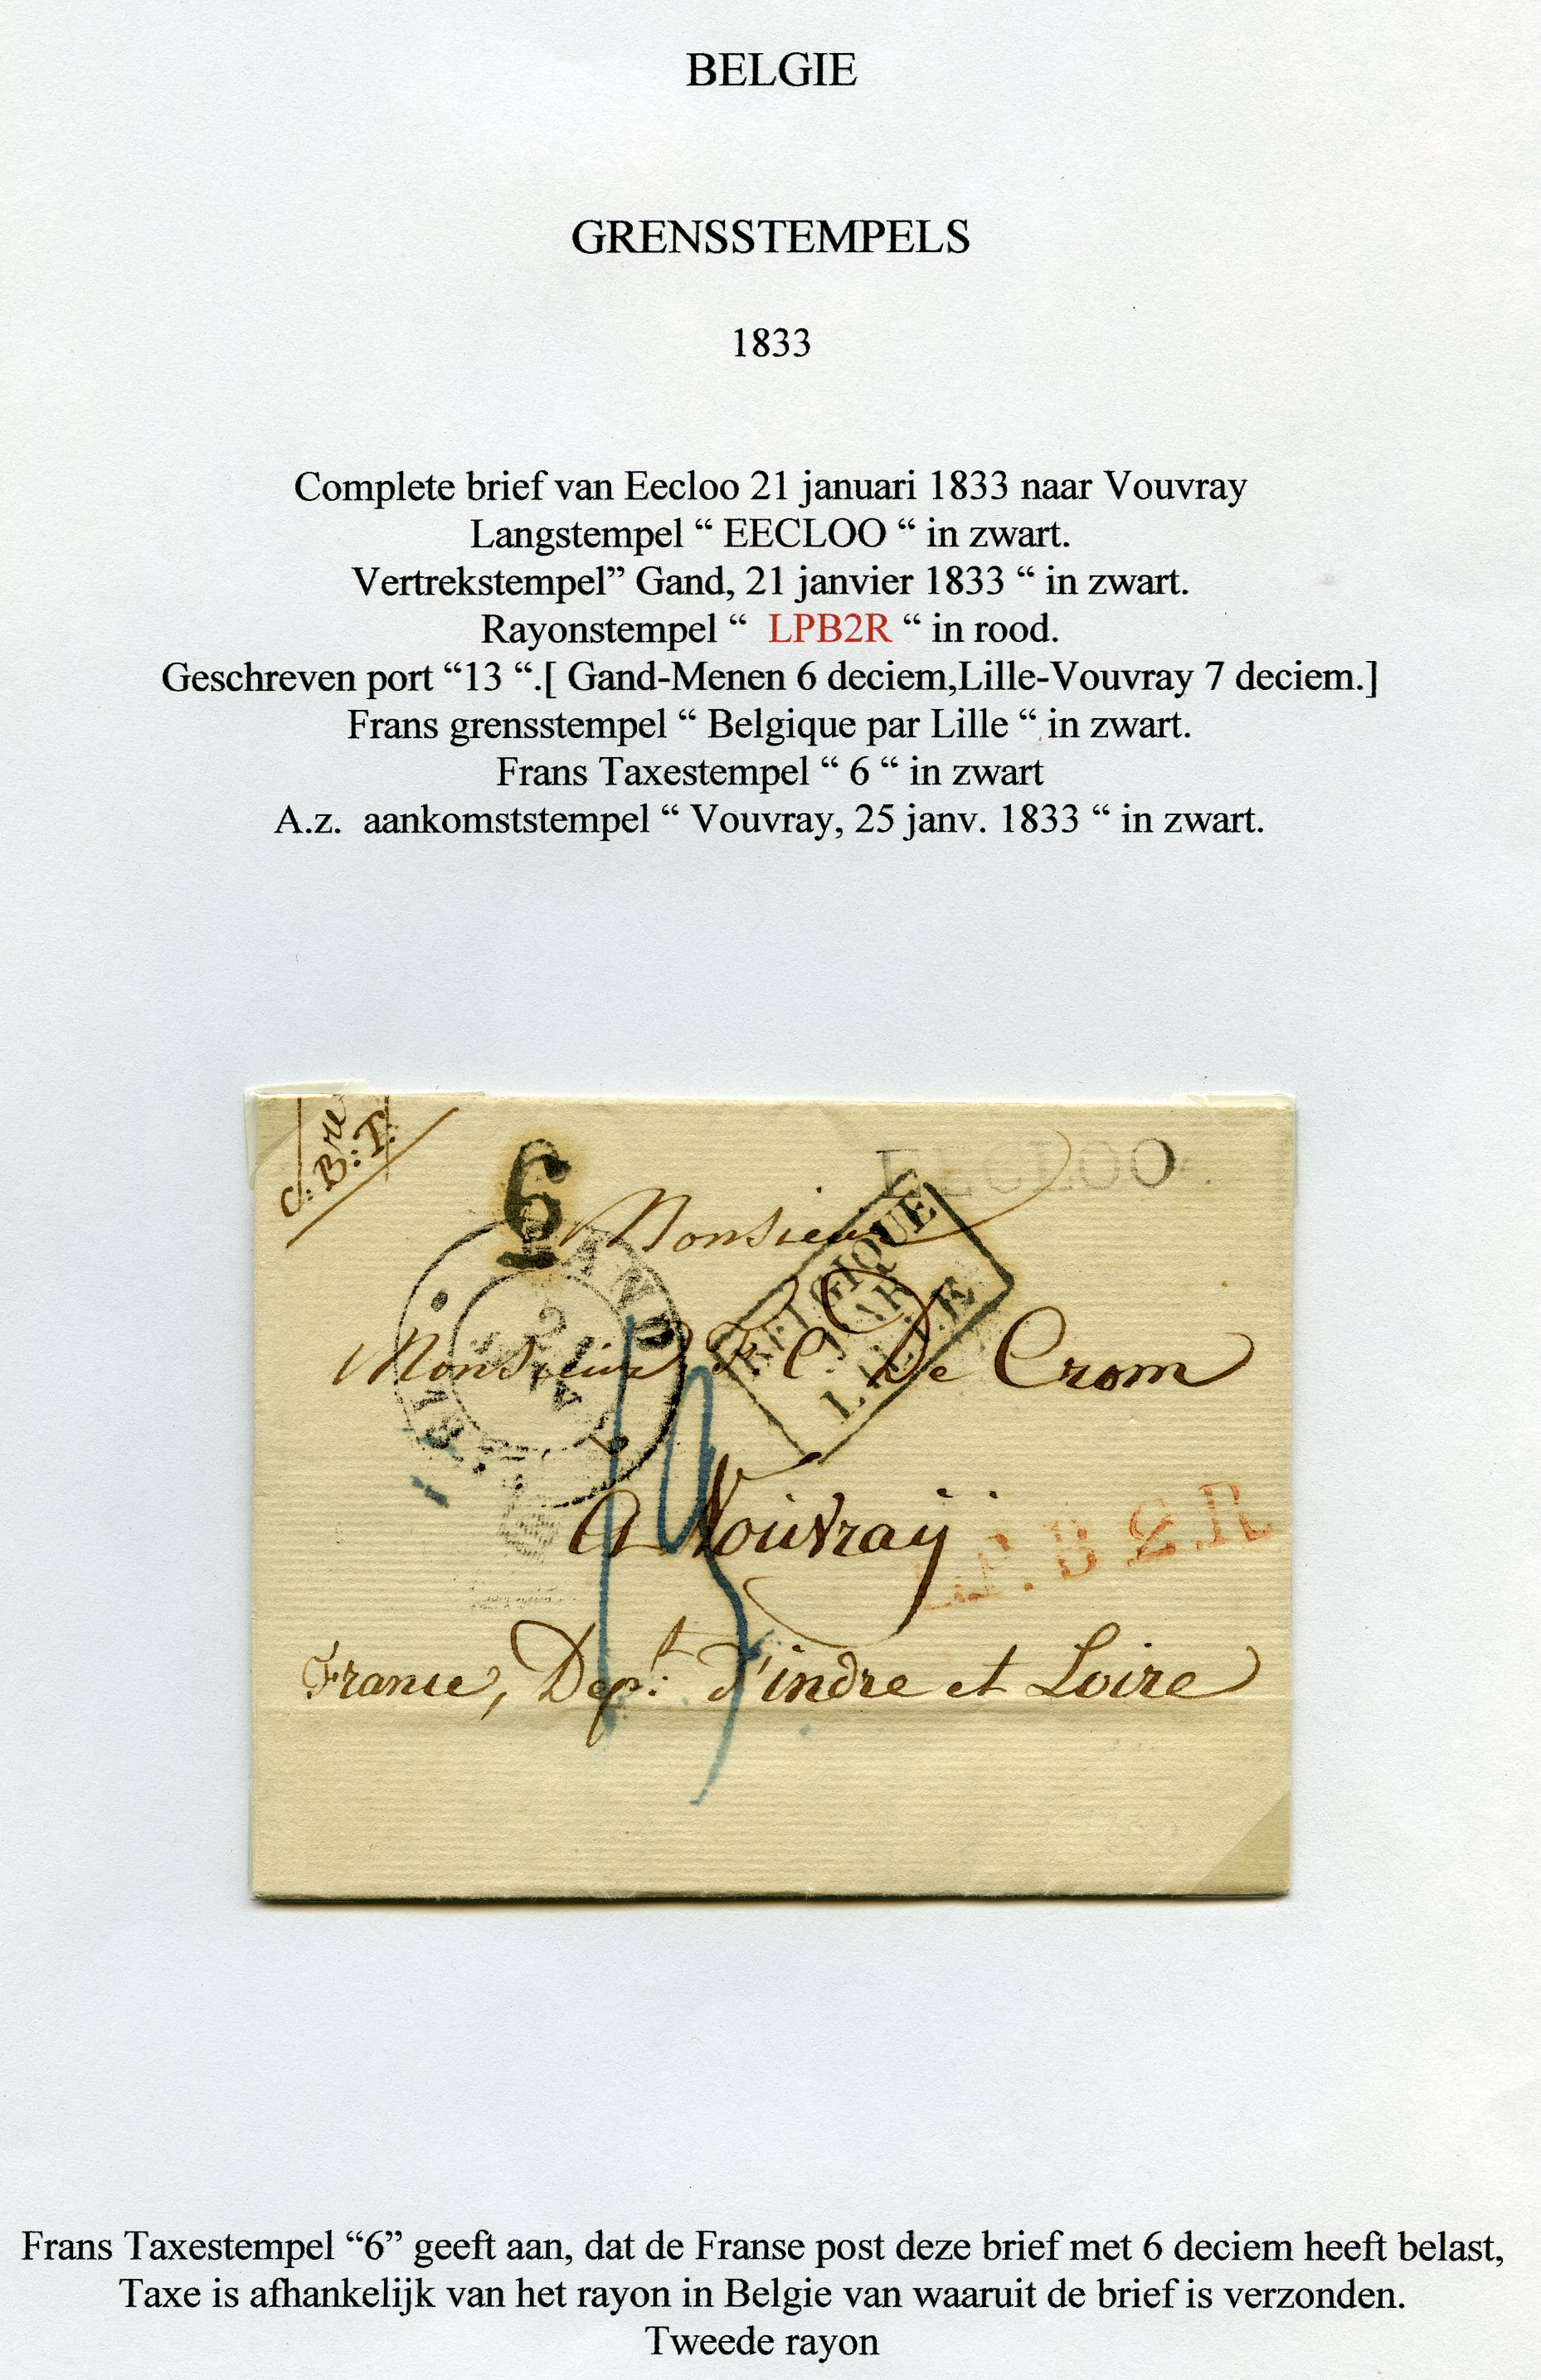 BELGIE
GRENSSTEMPELS
1833
Complete brief van Eecloo 21 januari 1833 naar Vouvray
Langstempel “ EECLOO “ in zwart.
Vertrekstempel” Gand, 21 janvier 1833 “ in zwart.
Rayonstempel “ LPB2R “ in rood.
Geschreven port “13 “.[ Gand-Menen 6 deciem,Lille-Vouvray 7 deciem.]
Frans grensstempel “ Belgique par Lille “ in zwart.
Frans Taxestempel “ 6 “ in zwart
A.z. aankomststempel “ Vouvray, 25 janv. 1833 “ in zwart.
C: B: T.
6
EECLOO
Monsieur
GAND
BELGIQUE
PAR
LILLE
Monsieur F. C. De Crom
13
A Vouvraÿ
L.P.B.2.R
France, Dep.t d'indre et Loire
Frans Taxestempel “6” geeft aan, dat de Franse post deze brief met 6 deciem heeft belast,
Taxe is afhankelijk van het rayon in Belgie van waaruit de brief is verzonden.
Tweede rayon